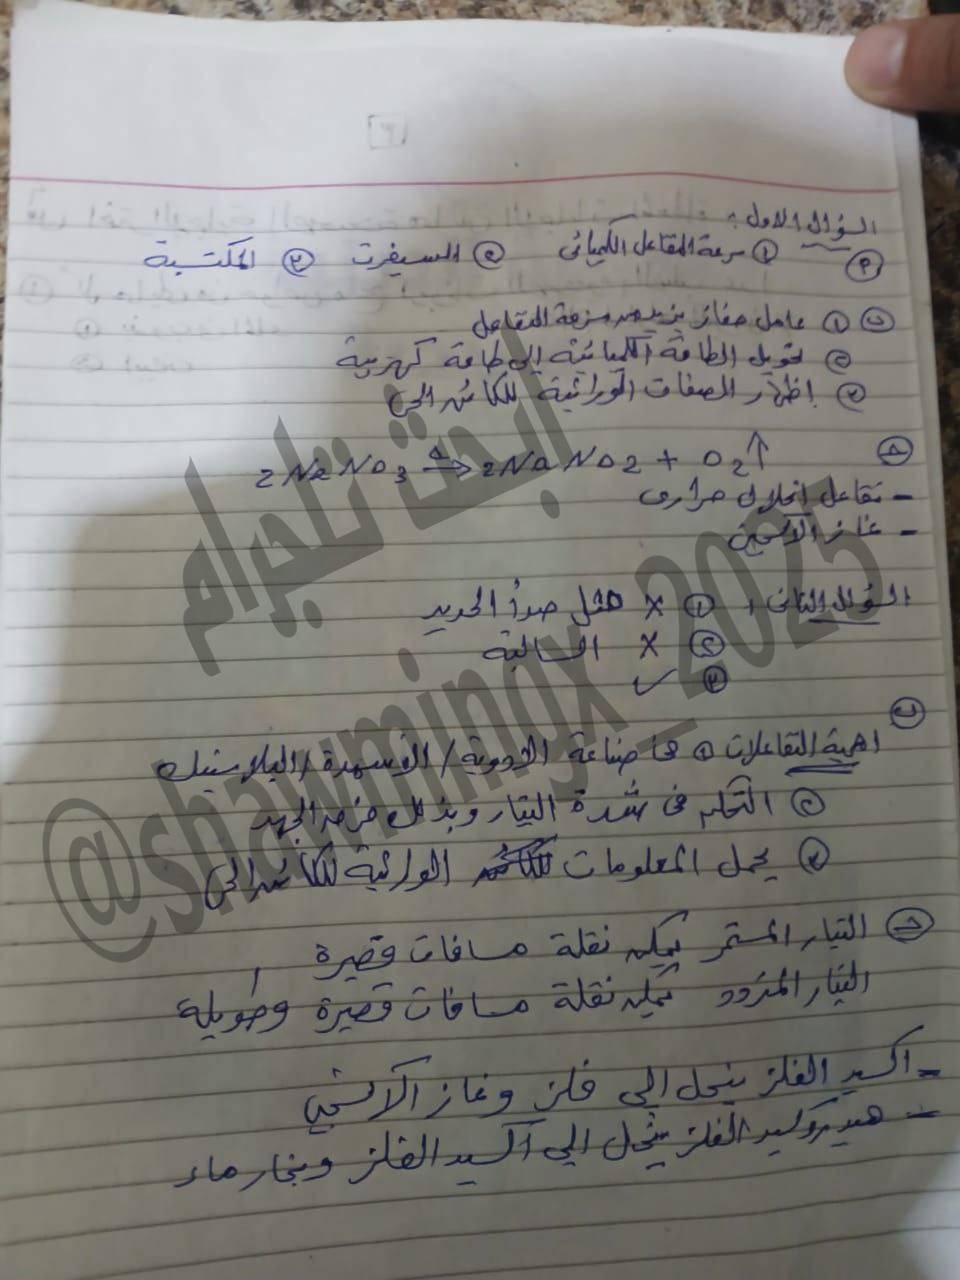 السؤال الاول :
أ ① سرعة التفاعل الكيميائى ② السيفرت ③ المكتسبة
ب ① عامل حفاز يزيد من سرعة التفاعل
② تحويل الطاقة الكيميائية إلى طاقة كهربية
③ إظهار الصفات الوراثية للكائن الحى
ج 2NaNO3 △→ 2NaNO2 + O2↑
- تفاعل انحلال حرارى
- غاز الأكسجين
السؤال الثانى : ① × مثل صدأ الحديد
② × السالبة
③ ✓
ب
اهمية التفاعلات ① فى صناعة الادوية / الأسمدة / البلاستيك
② التحكم فى شدة التيار وبذلك فرق الجهد
③ يحمل المعلومات الوراثية للكائن الحى
ج التيار المستمر يمكن نقلة مسافات قصيرة
التيار المتردد يمكن نقلة مسافات قصيرة وطويلة
- اكسيد الفلز ينحل إلى فلز وغاز الأكسجين
- هيدروكسيد الفلز ينحل إلى أكسيد الفلز وبخار ماء
ابحث تليجرام
@shawmingx_2025